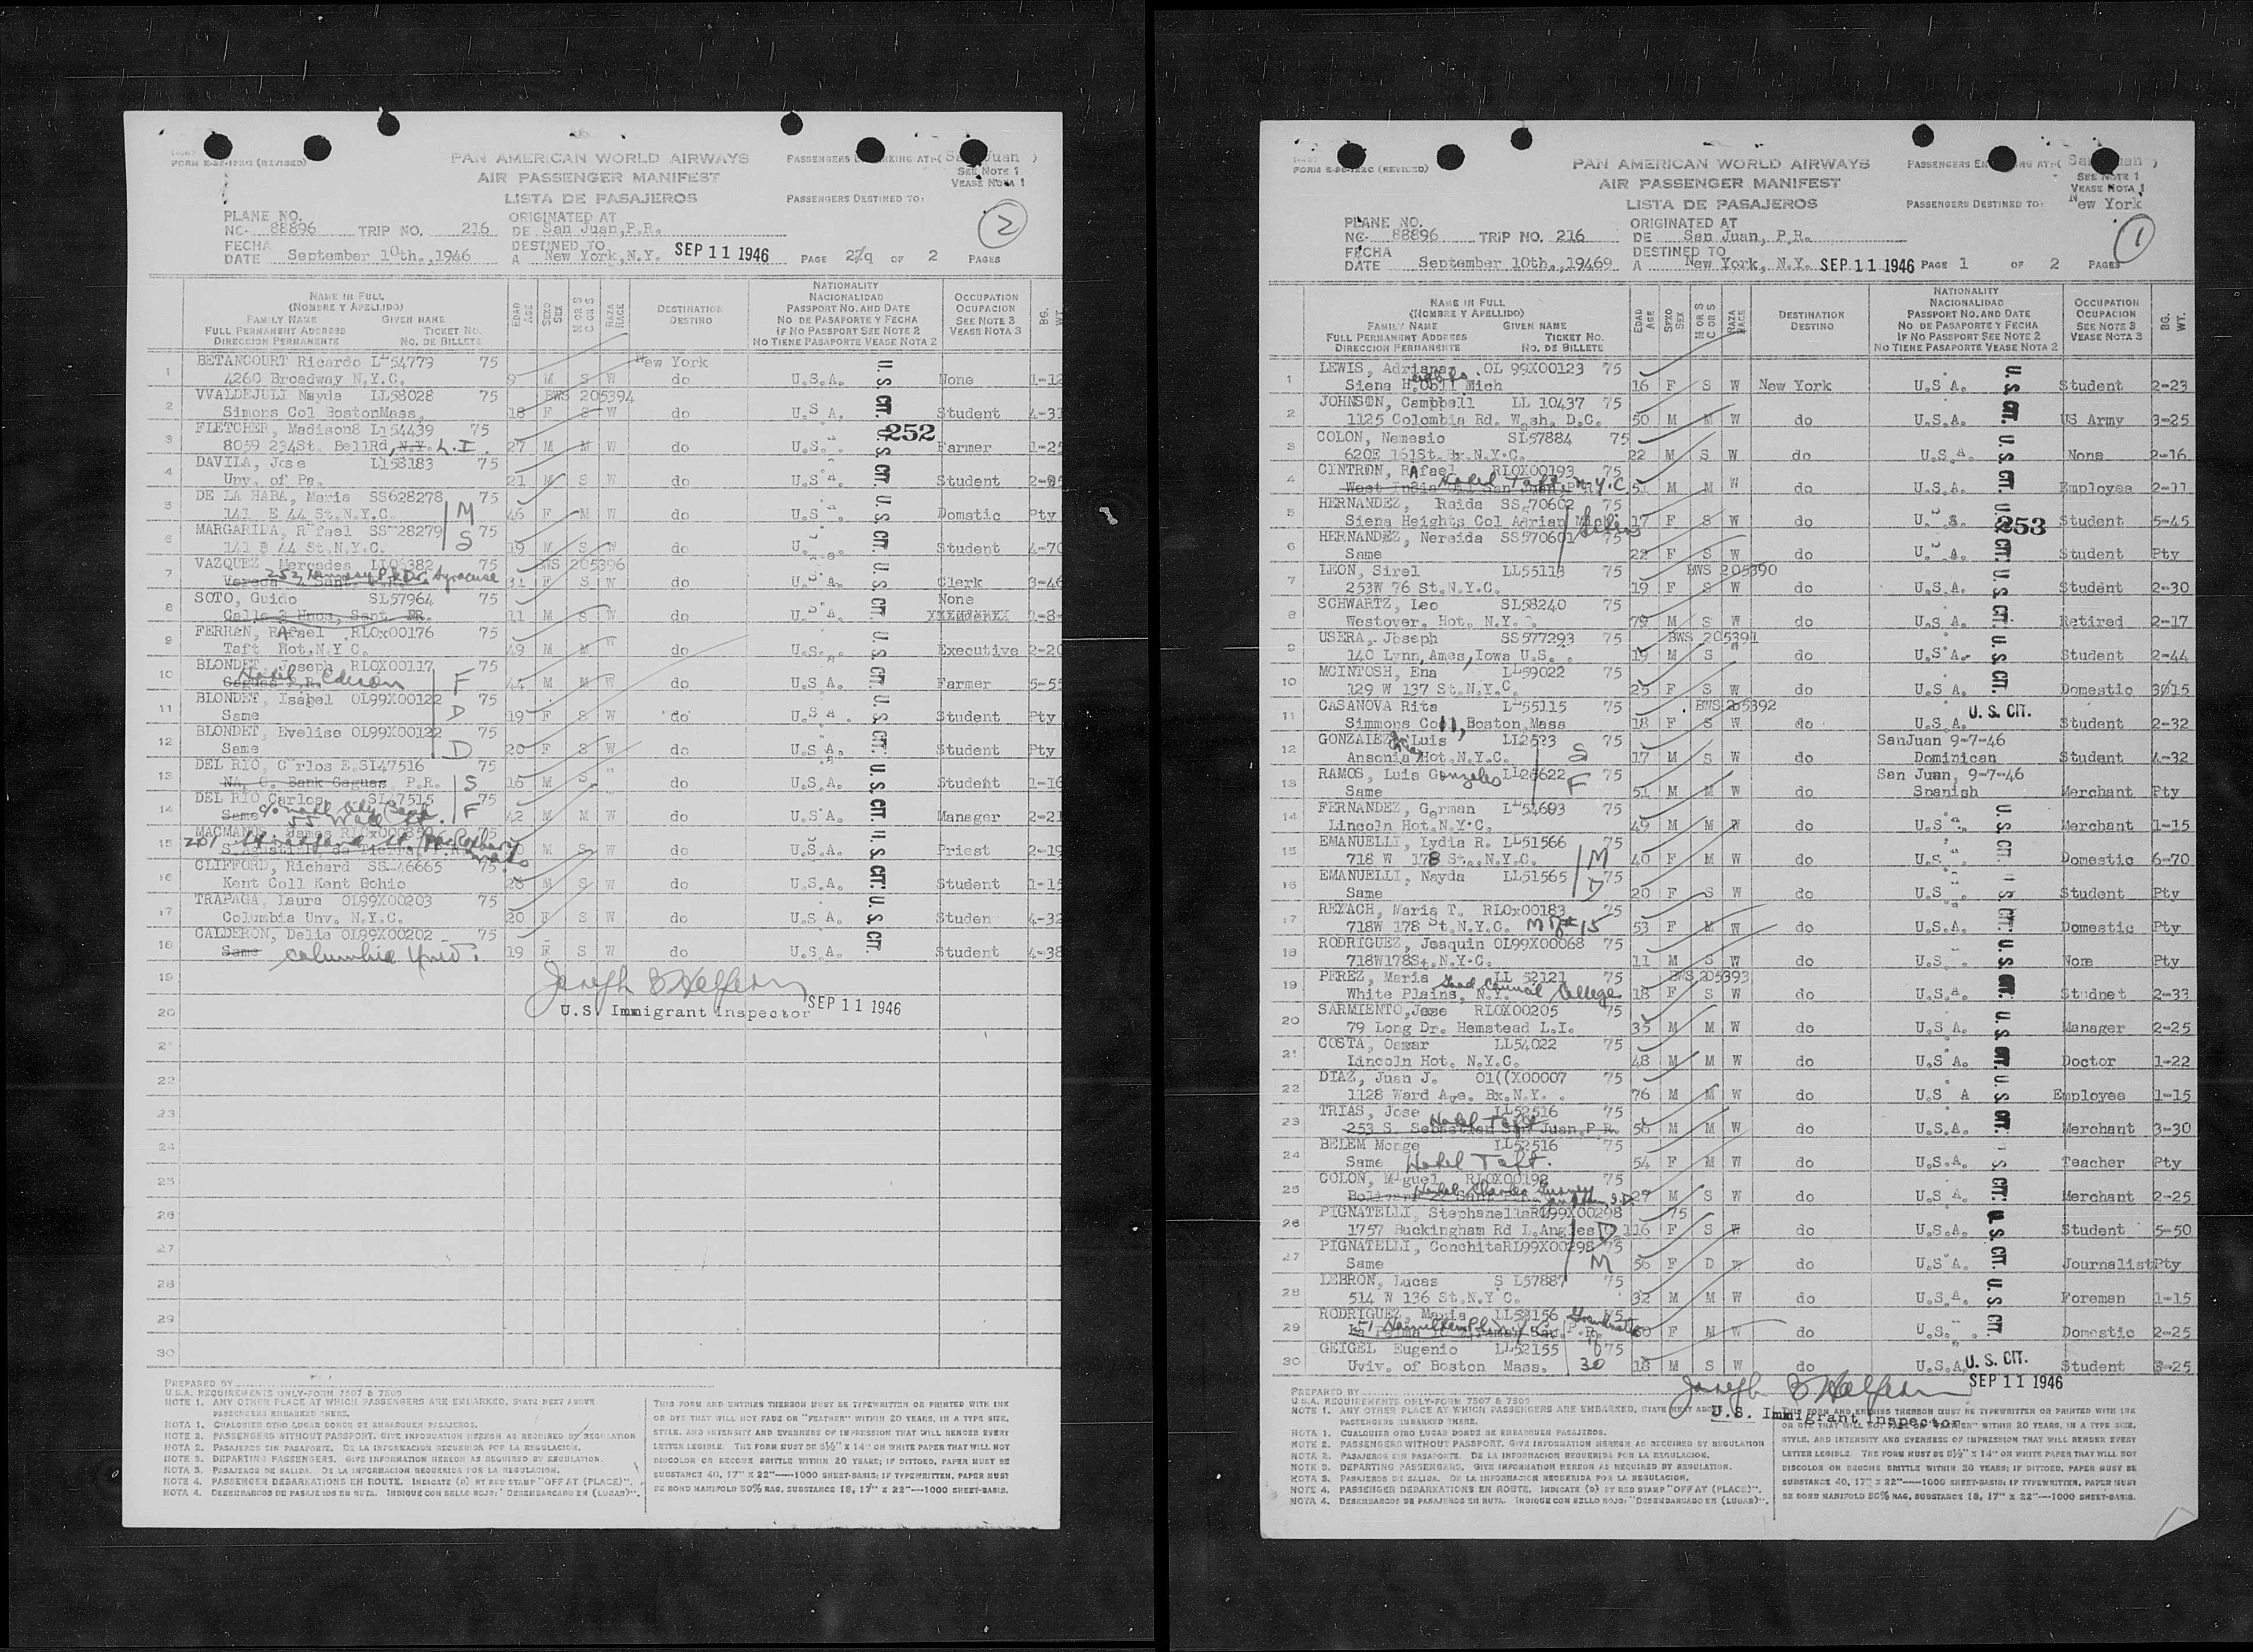 FORM E-86-122G (REVISED)
PAN AMERICAN WORLD AIRWAYS
AIR PASSENGER MANIFEST
LISTA DE PASAJEROS
SEE NOTE 1
VEASE NOTA 1
PASSENGERS DESTINED TO:
2
PLANE NO.
NC- 88896 TRIP NO. 216
ORIGINATED AT
DE San Juan,P.R.
FECHA
DATE September 10th.,1946
DESTINED TO
A New York,N.Y. SEP 11 1946
PAGE OF 2 PAGES
NAME IN FULL
(NOMBRE Y APELLIDO)
FAMILY NAME GIVEN NAME
FULL PERMANENT ADDRESS TICKET NO.
DIRECCION PERMANENTE NO. DE BILLETE
EDAD AGE
SEXO SEX
M OR S
C OR S
RAZA RACE
DESTINATION
DESTINO
NATIONALITY
NACIONALIDAD
PASSPORT NO. AND DATE
NO DE PASAPORTE Y FECHA
IF NO PASSPORT SEE NOTE 2
NO TIENE PASAPORTE VEASE NOTA 2
OCCUPATION
OCUPACION
SEE NOTE 3
VEASE NOTA 3
BG. WT.
1 BETANCOURT Ricardo LL54779 75 New York
4260 Broadway N.Y.C. 9 M S W do U.S.A. None 1-12
2 VVALDEJULI Nayda LL58028 75 BWS 205394
Simons Col BostonMass. 18 F S W do U.S A. Student 4-31
252
3 FLETCHER, Madison8 L154439 75
8059 234St. BellRd, N.Y. L.I. 27 M M W do Farmer 1-25
4 DAVILA, Jose L158183 75
Unv. of Pa. 21 M S W do U.S A. Student
5 DE LA HABA, Maria SS628278 75 M
141 E 44 St.N.Y.C. 46 F M W do Domstic Pty
6 MARGARIDA, Rafael 75 S
141 E 44 St.N.Y.C. 19 M S W do Student 4-70
7 VAZQUEZ Mercedes LL06382 75 205396
Syracuse 31 F S W do U.S A. Clerk 3-46
8 SOTO, Guido SL57964 75 None
11 M S W do U.S A. 1-8-
9 FERRAN, RAfael RLOx00176 75
Taft Hot.N.Y C. 49 M M W do Executive 2-20
10 BLONDET, Joseph RLOX00117 75 F
Hotel Edison 44 M M W do U.S A. Farmer 5-55
11 BLONDET, Isabel OL99X00122 75 D
Same 19 F S W do U.S A . Student Pty
12 BLONDET, Evelise OL99X00122 75 D
Same 20 F S W do U.S A. Student Pty
13 DEL RIO, Carlos E.SL47516 75 S
NA. C. Bank Caguas P.R. 16 M S do U.S.A. Student 1-16
14 DEL RIO Carlos SL47515 75 F
Same 42 M M W do U.S.A. Manager 2-21
15 MACMANUS, James 75
201 S W do U.S.A. Priest 2-19
16 CLIFFORD, Richard 75
Kent Coll Kent Oohio 28 M S W do U.S.A. Student 1-15
17 TRAPAGA, Laura OL99X00203 75
Columbia Unv. N.Y.C. 20 F S W do U.S A. Studen 4-32
18 CALDERON, Delia OL99X00202 75
Same Columbia Univ. 19 F S W do U.S.A. Student 4-38
U.S. CIT.
19
20
U.S. Immigrant Inspector SEP 11 1946
22
23
24
25
26
27
28
29
30
PREPARED BY
U.S.A. REQUIREMENTS ONLY-FORM 7507 & 7509
NOTE 1. ANY OTHER PLACE AT WHICH PASSENGERS ARE EMBARKED, STATE NEXT ABOVE
PASSENGERS EMBARKED THERE.
NOTA 1. CUALQUIER OTRO LUGAR DONDE SE EMBARQUEN PASAJEROS.
NOTE 2. PASSENGERS WITHOUT PASSPORT. GIVE INFORMATION HEREON AS REQUIRED BY REGULATION
NOTA 2. PASAJEROS SIN PASAPORTE. DE LA INFORMACION REQUERIDA POR LA REGULACION.
NOTE 3. DEPARTING PASSENGERS. GIVE INFORMATION HEREON AS REQUIRED BY REGULATION.
NOTA 3. PASAJEROS DE SALIDA. DE LA INFORMACION REQUERIDA POR LA REGULACION.
NOTE 4. PASSENGER DEBARKATIONS EN ROUTE. INDICATE (D) BY RED STAMP "OFF AT (PLACE)".
NOTA 4. DESEMBARCOS DE PASAJEROS EN RUTA. INDIQUE CON SELLO ROJO: "DESEMBARCADO EN (LUGAR)".
THIS FORM AND ENTRIES THEREON MUST BE TYPEWRITTEN OR PRINTED WITH INK
OR DYE THAT WILL NOT FADE OR "FEATHER" WITHIN 20 YEARS, IN A TYPE SIZE,
STYLE, AND INTENSITY AND EVENNESS OF IMPRESSION THAT WILL RENDER EVERY
LETTER LEGIBLE. THE FORM MUST BE 8½" X 14" ON WHITE PAPER THAT WILL NOT
DISCOLOR OR BECOME BRITTLE WITHIN 20 YEARS; IF DITTOED, PAPER MUST BE
SUBSTANCE 40, 17" X 22"-----1000 SHEET-BASIS; IF TYPEWRITTEN, PAPER MUST
BE BOND MANIFOLD 50% RAG, SUBSTANCE 18, 17" X 22"----1000 SHEET-BASIS.
FORM E-86-122G (REVISED)
PAN AMERICAN WORLD AIRWAYS
AIR PASSENGER MANIFEST
LISTA DE PASAJEROS
SEE NOTE 1
VEASE NOTA 1
PASSENGERS DESTINED TO: New York
1
PLANE NO.
NC- 88896 TRIP NO. 216
ORIGINATED AT
DE San Juan, P.R.
FECHA
DATE September 10th.,19469
DESTINED TO
A New York, N.Y. SEP 11 1946 PAGE 1 OF 2 PAGES
NAME IN FULL
(NOMBRE Y APELLIDO)
FAMILY NAME GIVEN NAME
FULL PERMANENT ADDRESS TICKET NO.
DIRECCION PERMANENTE NO. DE BILLETE
EDAD AGE
SEXO SEX
M OR S
C OR S
RAZA RACE
DESTINATION
DESTINO
NATIONALITY
NACIONALIDAD
PASSPORT NO. AND DATE
NO DE PASAPORTE Y FECHA
IF NO PASSPORT SEE NOTE 2
NO TIENE PASAPORTE VEASE NOTA 2
OCCUPATION
OCUPACION
SEE NOTE 3
VEASE NOTA 3
BG. WT.
1 LEWIS, OL 99X00123 75
Siena Mich 16 F S W New York U.S A. Student 2-23
2 JOHNSON, Campbell LL 10437 75
1125 Colombia Rd. Wash, D.C. 50 M M W do U.S.A. US Army 3-25
3 COLON, Nemesio SL57884 75
620E 161St. Bx.N.Y.C. 22 M S W do U.S.A. None 2-16
4 CINTRON, RAfael RLOX00193 75
Hotel Taft N.Y.C 51 M M W do U.S.A. Employee 2-11
5 HERNANDEZ, Raida SS 70602 75
Siena Heights Col Adrian Mich 17 F S W do Student 5-45
253
6 HERNANDEZ, Nereida SS570601 75
Same 22 F S W do Student Pty
7 LEON, Sirel LL55113 75 BWS 205390
253W 76 St.N.Y.C. 19 F S W do U.S.A. Student 2-30
8 SCHWARTZ, Leo SL58240 75
Westover. Hot. N.Y. 79 M S W do U.S A. Retired 2-17
9 USERA, Joseph SS577293 75 BWS 205391
140 Lynn,Ames,Iowa U.S. 19 M S do U.S A. Student 2-44
10 MCINTOSH, Ena LL59022 75
129 W 137 St.N.Y.C. 25 F S W do U.S A. Domestic
11 CASANOVA Rita LL55115 75 BWS 205392
Simmons Coll, Boston Mass 18 F S W do U.S.A. U. S. CIT. Student 2-32
12 GONZALEZ Luis LL2523 75 S SanJuan 9-7-46
Ansonia Hot.N.Y.C. 17 M S W do Dominican Student 4-32
13 RAMOS, Luis Gonzales 75 F San Juan, 9-7-46
Same 51 M M W do Spanish Merchant Pty
14 FERNANDEZ, German LL54603 75
Lincoln Hot.N.Y.C. 49 M M W do Merchant 1-15
15 EMANUELLI, Lydia R. LL51566 75 M
718 W 178 St..N.Y.C. 40 F M W do Domestic 6-70
16 EMANUELLI, Nayda LL51565 75 D
Same 20 F S W do Student Pty
17 REXACH, Maria T. RLOx00183 75
718W 178 St.N.Y.C. 53 F M W do U.S.A. Domestic Pty
18 RODRIGUEZ, Joaquin OL99X00068 75
718W178St.N.Y.C. 11 M S W do None Pty
19 PEREZ, Maria LL 52121 75 BWS 205393
White Plains, N.Y. Good Council College 18 F S W do U.S.A. Studnet 2-33
20 SARMIENTO,Jose RLOX00205 75
79 Long Dr. Hemstead L.I. 35 M M W do U.S A. Manager 2-25
21 COSTA, Oscar LL54022 75
Lincoln Hot. N.Y.C. 48 M M W do U.S A. Doctor 1-22
22 DIAZ, Juan J. O1((X00007 75
1128 Ward Ave. Bx.N.Y. 76 M M W do U.S A Employee 1-15
23 TRIAS, Jose LL52516 75
253 S. Sebastian San Juan,P.R. Hotel Taft 56 M M W do U.S.A. Merchant 3-30
24 BELEM Monge LL52516 75
Same Hotel Taft. 54 F M W do U.S.A. Teacher Pty
25 COLON, Miguel RLOX00192 75
27 M S W do U.S A. Merchant 2-25
26 PIGNATELLI, StephanellaRL99X00298 75
1757 Buckingham Rd L.Angles D 116 F S W do U.S.A. Student 5-50
27 PIGNATELLI, ConchitaRL99X00298 75
Same M 56 F D W do U.S A. Journalist Pty
28 LEBRON, Lucas S L57887 75
514 W 136 St.N.Y C. 32 M M W do U.S.A. Foreman 1-15
29 RODRIGUEZ, Maria LL58156 75
F M W do U.S. Domestic 2-25
30 GEIGEL Eugenio LL52155 75
Uviv. of Boston Mass. 30 18 M S W do U.S.A. U. S. CIT. Student
SEP 11 1946
U.S. Immigrant Inspector
PREPARED BY
U.S.A. REQUIREMENTS ONLY-FORM 7507 & 7509
NOTE 1. ANY OTHER PLACE AT WHICH PASSENGERS ARE EMBARKED, STATE NEXT ABOVE
PASSENGERS EMBARKED THERE.
NOTA 1. CUALQUIER OTRO LUGAR DONDE SE EMBARQUEN PASAJEROS.
NOTE 2. PASSENGERS WITHOUT PASSPORT. GIVE INFORMATION HEREON AS REQUIRED BY REGULATION
NOTA 2. PASAJEROS SIN PASAPORTE. DE LA INFORMACION REQUERIDA POR LA REGULACION.
NOTE 3. DEPARTING PASSENGERS. GIVE INFORMATION HEREON AS REQUIRED BY REGULATION.
NOTA 3. PASAJEROS DE SALIDA. DE LA INFORMACION REQUERIDA POR LA REGULACION.
NOTE 4. PASSENGER DEBARKATIONS EN ROUTE. INDICATE (D) BY RED STAMP "OFF AT (PLACE)".
NOTA 4. DESEMBARCOS DE PASAJEROS EN RUTA. INDIQUE CON SELLO ROJO: "DESEMBARCADO EN (LUGAR)".
THIS FORM AND ENTRIES THEREON MUST BE TYPEWRITTEN OR PRINTED WITH INK
OR DYE THAT WILL NOT FADE OR "FEATHER" WITHIN 20 YEARS, IN A TYPE SIZE,
STYLE, AND INTENSITY AND EVENNESS OF IMPRESSION THAT WILL RENDER EVERY
LETTER LEGIBLE. THE FORM MUST BE 8½" X 14" ON WHITE PAPER THAT WILL NOT
DISCOLOR OR BECOME BRITTLE WITHIN 20 YEARS; IF DITTOED, PAPER MUST BE
SUBSTANCE 40, 17" X 22"-----1000 SHEET-BASIS; IF TYPEWRITTEN, PAPER MUST
BE BOND MANIFOLD 50% RAG, SUBSTANCE 18, 17" X 22"----1000 SHEET-BASIS.